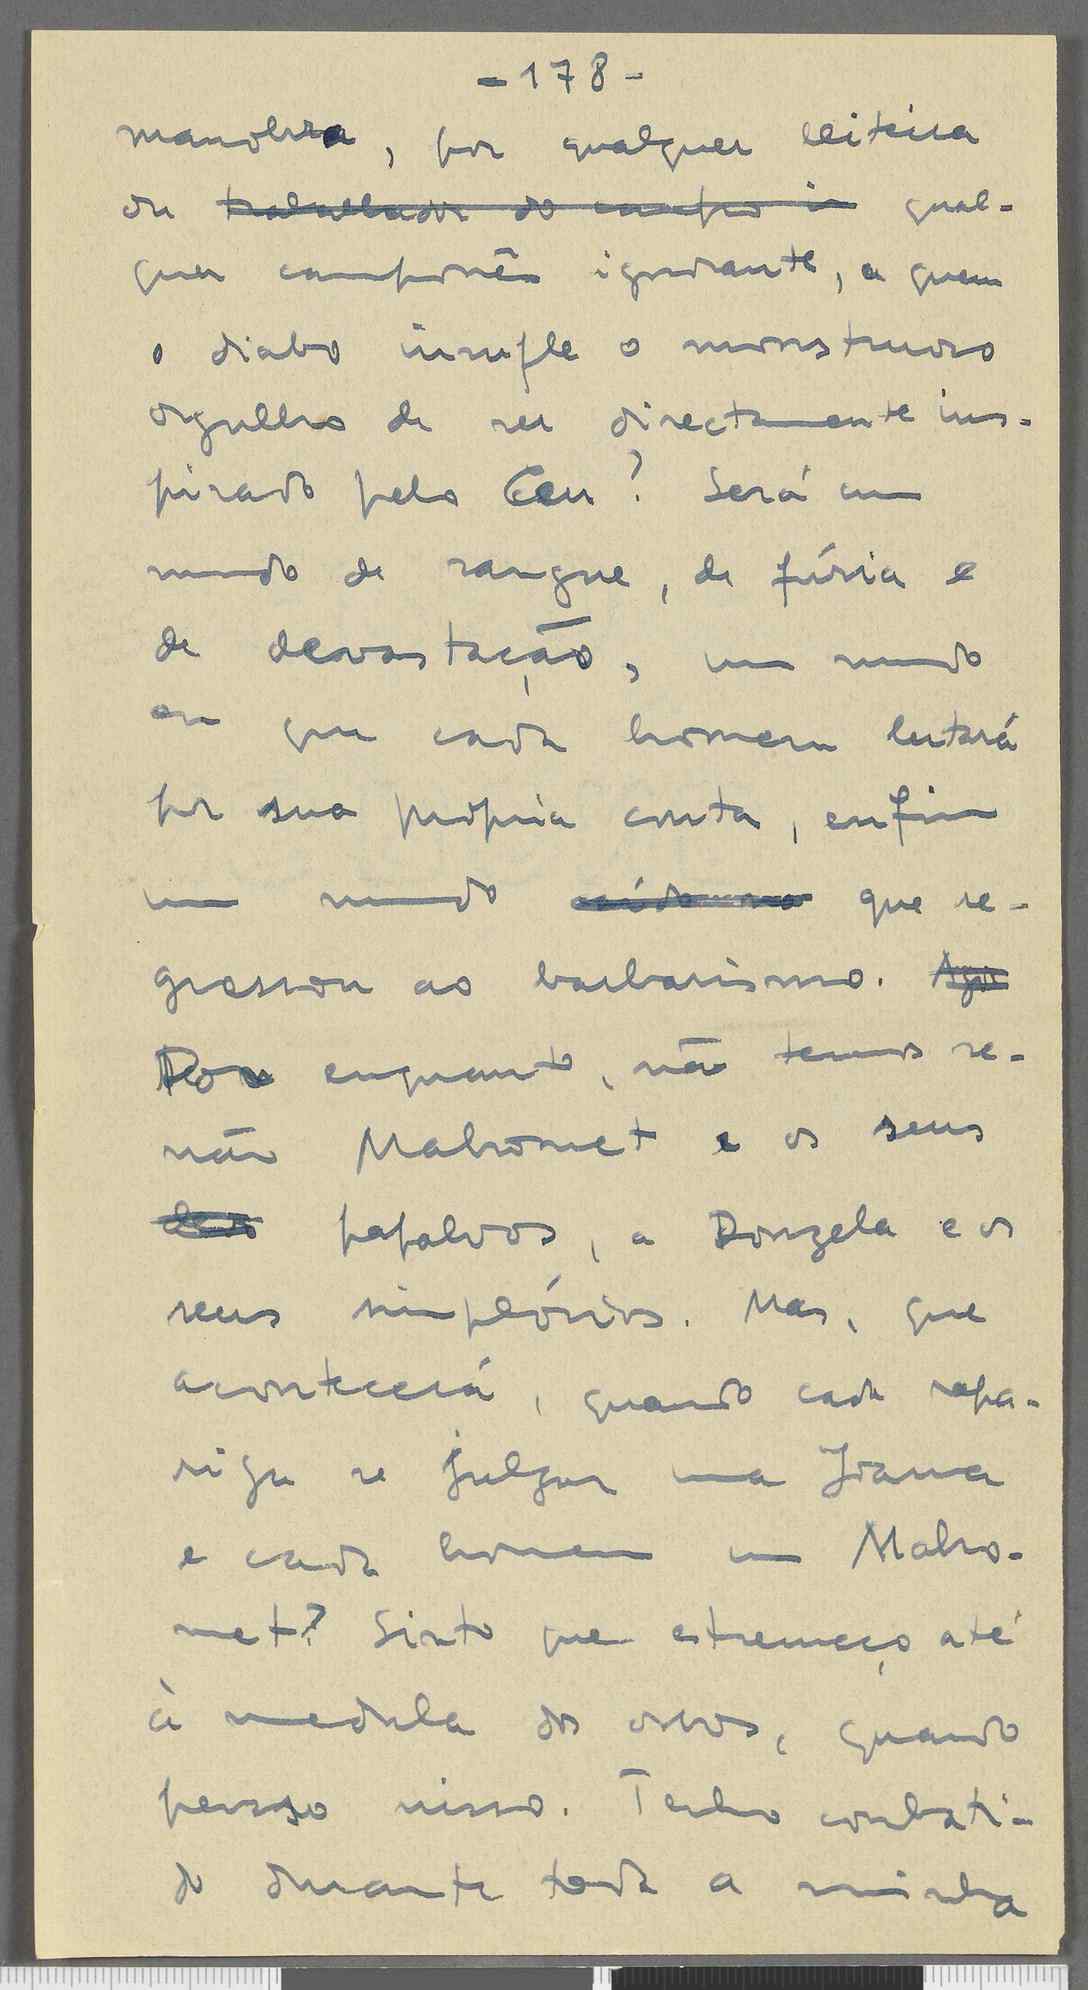 - 178 -
manobra, por qualquer leiteira
ou trabalhador do campo i qual-
quer camponês ignorante, a quem
o diabo insufle o monstruoso
orgulho de ser directamente ins-
pirado pelo Ceu? Será um
mundo de sangue, de fúria e
de devastação, um mundo
em que cada homem lutará
por sua própria conta, enfim
um mundo caído no que re-
gressou ao barbarismo. Ago
Por enquanto, não temos se-
não Mahomet e os seus
papalvos, a Donzela e os
seus simplórios. Mas, que
acontecerá, quando cada rapa-
riga se julgar uma Joana
e cada homem um Maho-
met? Sinto que estremeço até
à medula dos ossos, quando
penso nisso. Tenho combati-
do durante toda a minha